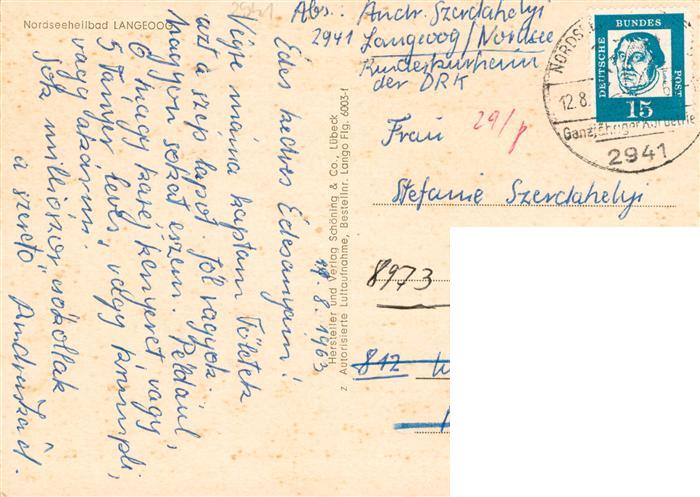 Nordseeheilbad LANGEOOG
2941
Abs.: Andr. Szerdahelyi
2941 Langeoog/Nordsee
Kinderkurheim
der DRK
29/
DEUTSCHE BUNDES POST
15
NORDS
12.8.
Ganzjähriger Kurbetrie
2941
Frau
Stefanie Szerdahelyi
8973
812
Hersteller und Verlag Schöning & Co., Lübeck
z Autorisierte Luftaufnahme, Bestellnr. Lango Flg. 6003-f
8.1963
Édes kedves Édesanyám!
Végre mama kaptam Tőletek
azt a szép lapot. Jól vagyok.
Nagyon sokat eszem. Például,
6 nagy karéj kenyeret, vagy
5 tányér leves, vagy krumpli,
vagy akármi.
Sok milliószor csókollak
a szerető Andriskád.